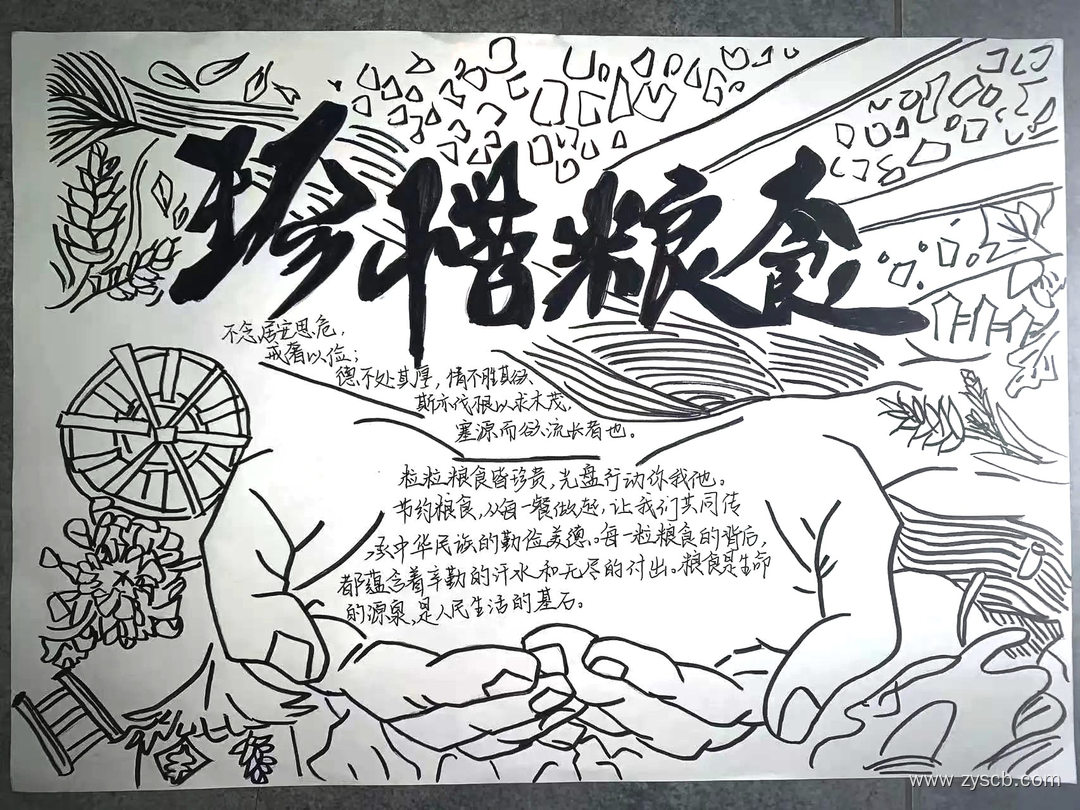 珍惜粮食
不念居安思危，
戒奢以俭；
德不处其厚，情不胜其欲，
斯亦伐根以求木茂，
塞源而欲流长者也。
粒粒粮食皆珍贵，光盘行动你我他。
节约粮食，从每一餐做起，让我们共同传
承中华民族的勤俭美德。每一粒粮食的背后，
都蕴含着辛勤的汗水和无尽的付出。粮食是生命
的源泉，是人民生活的基石。
www.zyscb.com